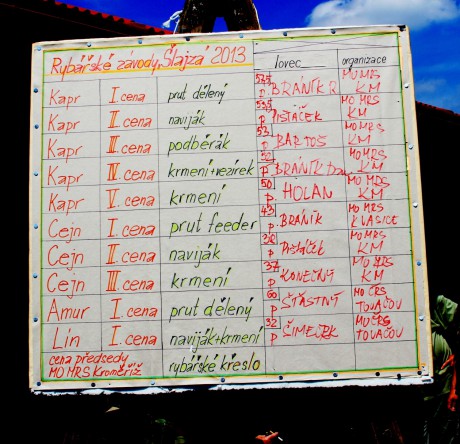 Rybářské závody „Šlajza" 2013 lovec organizace
Kapr I. cena prut dělený 57,5 p. BRÁNÍK R. MO MRS KM
Kapr II. cena naviják p. PISTÁČEK MO MRS KM
Kapr III. cena podběrák 53 p. BARTOŠ MO MRS KM
Kapr IV. cena krmení+vezírek 52 p. BRÁNÍK MO MRS KM
Kapr V. cena krmení 50 p. HOLAN MO MRS KM
Cejn I. cena prut feeder 43 p. BRÁNÍK MO MRS KVASICE
Cejn II. cena naviják p. PISTÁČEK MO MRS KM
Cejn III. cena krmení 37 p. KONEČNÝ MO MRS KM
Amur I. cena prut dělený 60 p. ŠŤASTNÝ MO ČRS TOVAČOV
Lín I. cena naviják+krmení 32 p. ŠIMEČEK MO ČRS TOVAČOV
cena předsedy
MO MRS Kroměříž rybářské křeslo